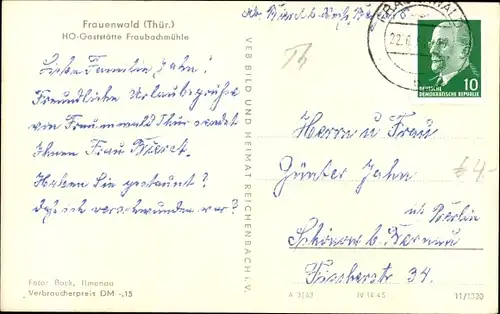 Frauenwald (Thür.)
HO-Gaststätte Fraubachmühle
Liebe Familie Jahn!
Freundliche Urlaubsgrüße
von Frauenwald Thür sendet
Ihnen Frau
Haben Sie gestaunt?
Daß ich verschwunden war?
Foto: Bock, Ilmenau
Verbraucherpreis DM -,15
VEB BILD UND HEIMAT REICHENBACH i. V.
FRAUENWALD
22.6.
DEUTSCHE
DEMOKRATISCHE REPUBLIK
10
Herrn u Frau
Günter Jahn
€4-
Berlin
Schönow b. Bernau
34.
IV-14-45
11/1320